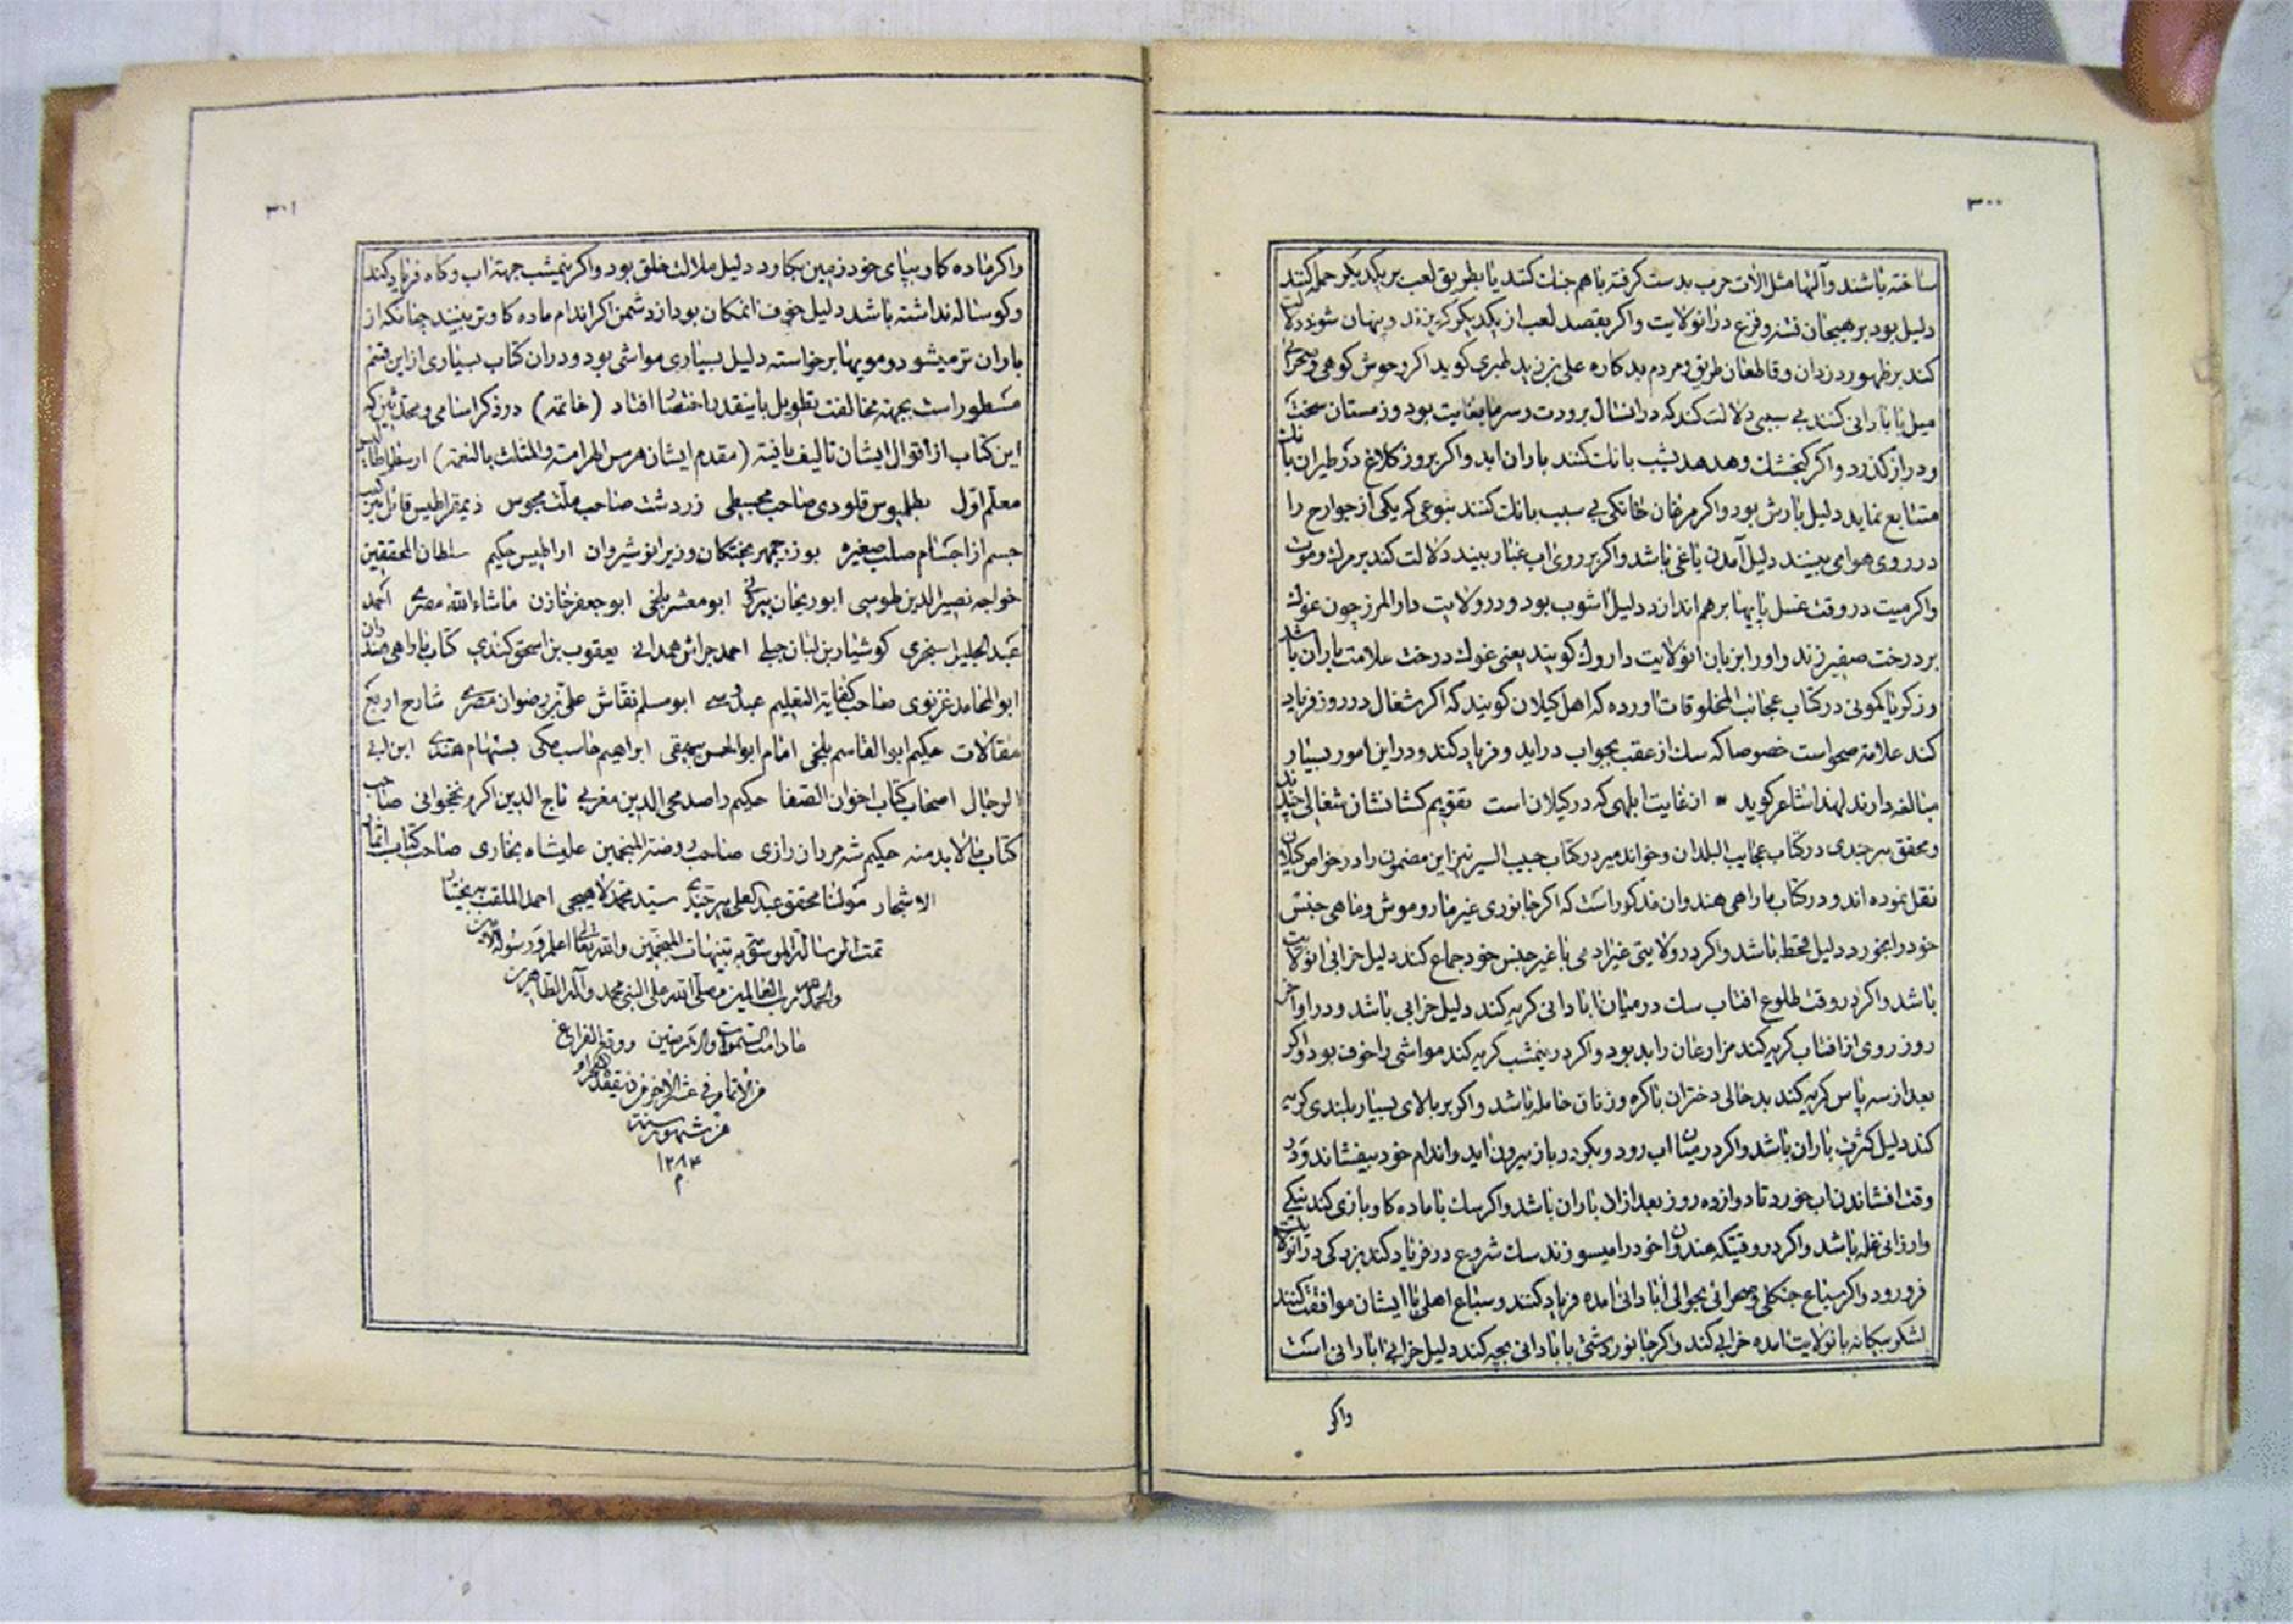 ۳۰۰
ساخته باشند و آلتها مثل الات حرب بدست کرفته با هم جنك کنند یا بطریق لعب بر یکدیکر حمله کنند
دلیل بود بر هیجان فتنه و فزع در انولایت واکر بقصد لعب از یکدیکر کریزند و پنهان شوند دلالت
کند بر ظهور دزدان و قاطعان طریق و مردم بدکاره علی بن زید طبری کوید اکر وحوش کوهی و صحرائی
میل بابادانی کنند بی سببی دلالت کند که در انسال برودت و سرما بغایت بود و زمستان سخت
و دراز کذرد واکر کنجشك و هدهد بشب بانك کنند باران اید واکر بروز کلاغ در طیران بانك
متتابع نماید دلیل بارش بود واکر مرغان خانکی بی سبب بانك کنند بنوعی که یکی از جوارح را
در روی هوا می بینند دلیل آمدن یاغی باشد واکر بر روی اب غبار بینند دلالت کند بر مرك و موت
واکر میت در وقت غسل پایها بر هم اندازد دلیل اشوب بود و در ولایت دارالمرز چون غوك
بر درخت صفیر زند و اورا بزبان انولایت داروك کویند یعنی غوك درخت علامت باران باشد
و زکریا کمونی در کتاب عجائب المخلوقات اورده که اهل کیلان کویند که اکر شغال در روز فریاد
کند علامة صحواست خصوصا که سك از عقب بجواب دراید و فریاد کند و در این امور بسیار
مبالغه دارند لهذا شاعر کوید از غایت ابلهی که در کیلان است تقویم کشانشان شغالی چندند
و محقق بیرجندی در کتاب عجایب البلدان و خواند میر در کتاب حبیب السیر نیز این مضمون را در خواص کیلان
نقل نموده اند و در کتاب ماراهی هندوان مذکور است که اکر جانوری غیر مار و موش و ماهی جنس
خود را بخورد دلیل قحط باشد واکر در ولایتی غیر ادمی با غیر جنس خود جماع کند دلیل خرابی انولایت
باشد واکر در وقت طلوع افتاب سك در میان ابادانی کریه کند دلیل خرابی باشد و در اواخر
روز روی از افتاب کریه کند مزارعان را بد بود واکر در نیمشب کریه کند مواشی را خوف بود واکر
بعد از سه پاس کریه کند بد حالی دختران باکره و زنان حامله باشد واکر بر بالای بسیار بلندی کریه
کند دلیل کثرت باران باشد واکر در میان اب رود و بکردد باز بیرون اید و اندام خود بیفشاند و در
وقت افشاندن اب خورد تا دوازده روز بعد از ان باران باشد واکر سك با ماده کاو بازی کند نیکی
و ارزانی غله باشد واکر در وقتیکه هندوان خود را میسوزند سك شروع در فریاد کند بزرکی در انولایت
فرو رود واکر سباع جنکلی و صحرائی بحوالی ابادانی امده فریاد کنند و سباع اهلی با ایشان موافقت کنند
لشکر بیکانه بانولایت امده خرابی کند واکر جانور دشتی بابادانی بچه کند دلیل خرابی ابادانی است
واکر
۳۰۱
واکر ماده کاو بپای خود زمین بکاود دلیل ملالت خلق بود واکر نیمشب جهة اب و کاه فریاد کند
و کوساله نداشته باشد دلیل خوف انمکان بود از دشمن اکر اندام ماده کاو تر بینند چنانکه از
باران تر میشود و مویها برخواسته دلیل بسیاری مواشی بود و دران کتاب بسیاری از این قسم
مسطور است بجهة مخالفت تطویل باینقدر اختصار افتاد (خاتمه) در ذکر اسامی و محدثین که
این کتاب از اقوال ایشان تالیف یافته (مقدم ایشان هرس الهرامسه والمثلث بالنعمه) ارسطاطالیس
معلم اول بطلمیوس قلودی صاحب مجسطی زردشت صاحب ملت مجوس ذیمقراطیس قائل بترکیب
جسم از اجسام صلب صغیره بوزرجمهر بختکان وزیر انوشیروان اراطیس حکیم سلطان المحققین
خواجه نصیر الدین طوسی ابوریحان بیرونی ابومعشر بلخی ابوجعفر خازن ماشاءالله مصری احمد
عبدالجلیل سنجری کوشیار بن لبان جیلی احمد جراش همدانی یعقوب بن اسحق کندی کتاب باراهی هندوان
ابوالمحامد غزنوی صاحب کفایة التعلیم ابومسلم نقاش علی بن رضوان مصری شارح اربع
مقالات حکیم ابوالقاسم بلخی امام ابوالحسن بیهقی ابراهیم حاسب مکی بستهام هندی ابن ابی
الرجال اصحاب کتاب اخوان الصفا حکیم راصد محی الدین مغربی تاج الدین اکرم نخجوانی صاحب
کتاب مالابد منه حکیم شهمردان رازی صاحب روضة المنجمین علیشاه بخاری صاحب کتاب اثمار
الاشجار مولنا محقق عبدالعلی بیرجندی سید محمد لاهیجی احمد الملقب به بختیار
تمت الرسالة الموسومة به تنبیهات المنجمین والله تعالی اعلم و رسوله الامین
والحمد لله رب العالمین وصلی الله علی النبی محمد و آله الطاهرین
ما دامت السموات والارضین و وقع الفراغ
من الاتمام فی عشر الاخر من ذیقعدة الحرام
من شهور سنة
۱۲۸۴
م